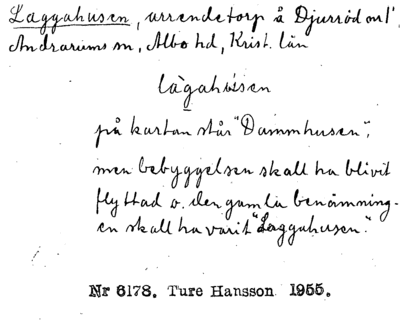 Laggahusen, arrendetorp å Djurröd nr 1,
Andrarums sn, Albo hd, Krist. län
på kartan står "Dammhusen",
men bebyggelsen skall ha blivit
flyttad o. den gamla benämning-
en skall ha varit "Laggahusen".
Nr 6178. Ture Hansson 1955.